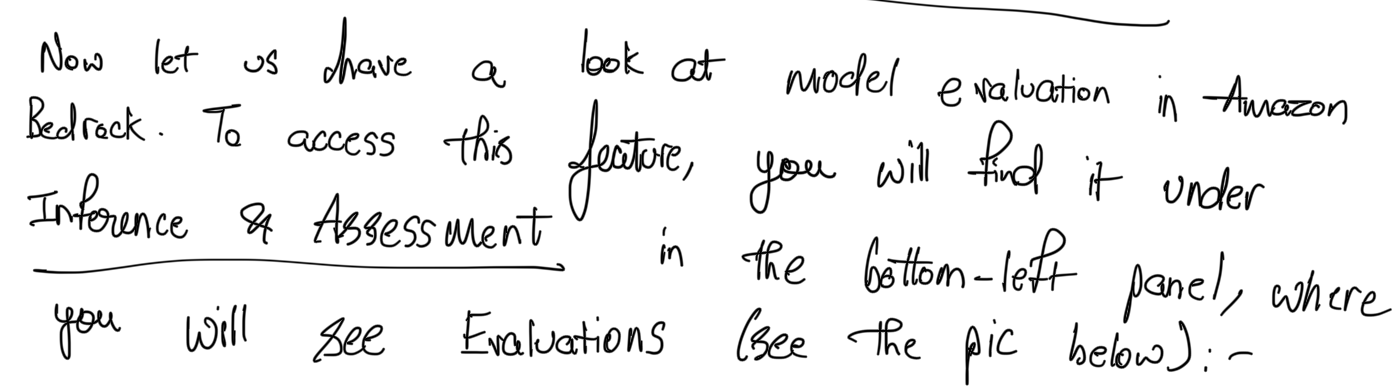 Now let us have a look at model evaluation in Amazon
Bedrock. To access this feature, you will find it under
Inference & Assessment in the bottom-left panel, where
you will see Evaluations (see the pic below):-